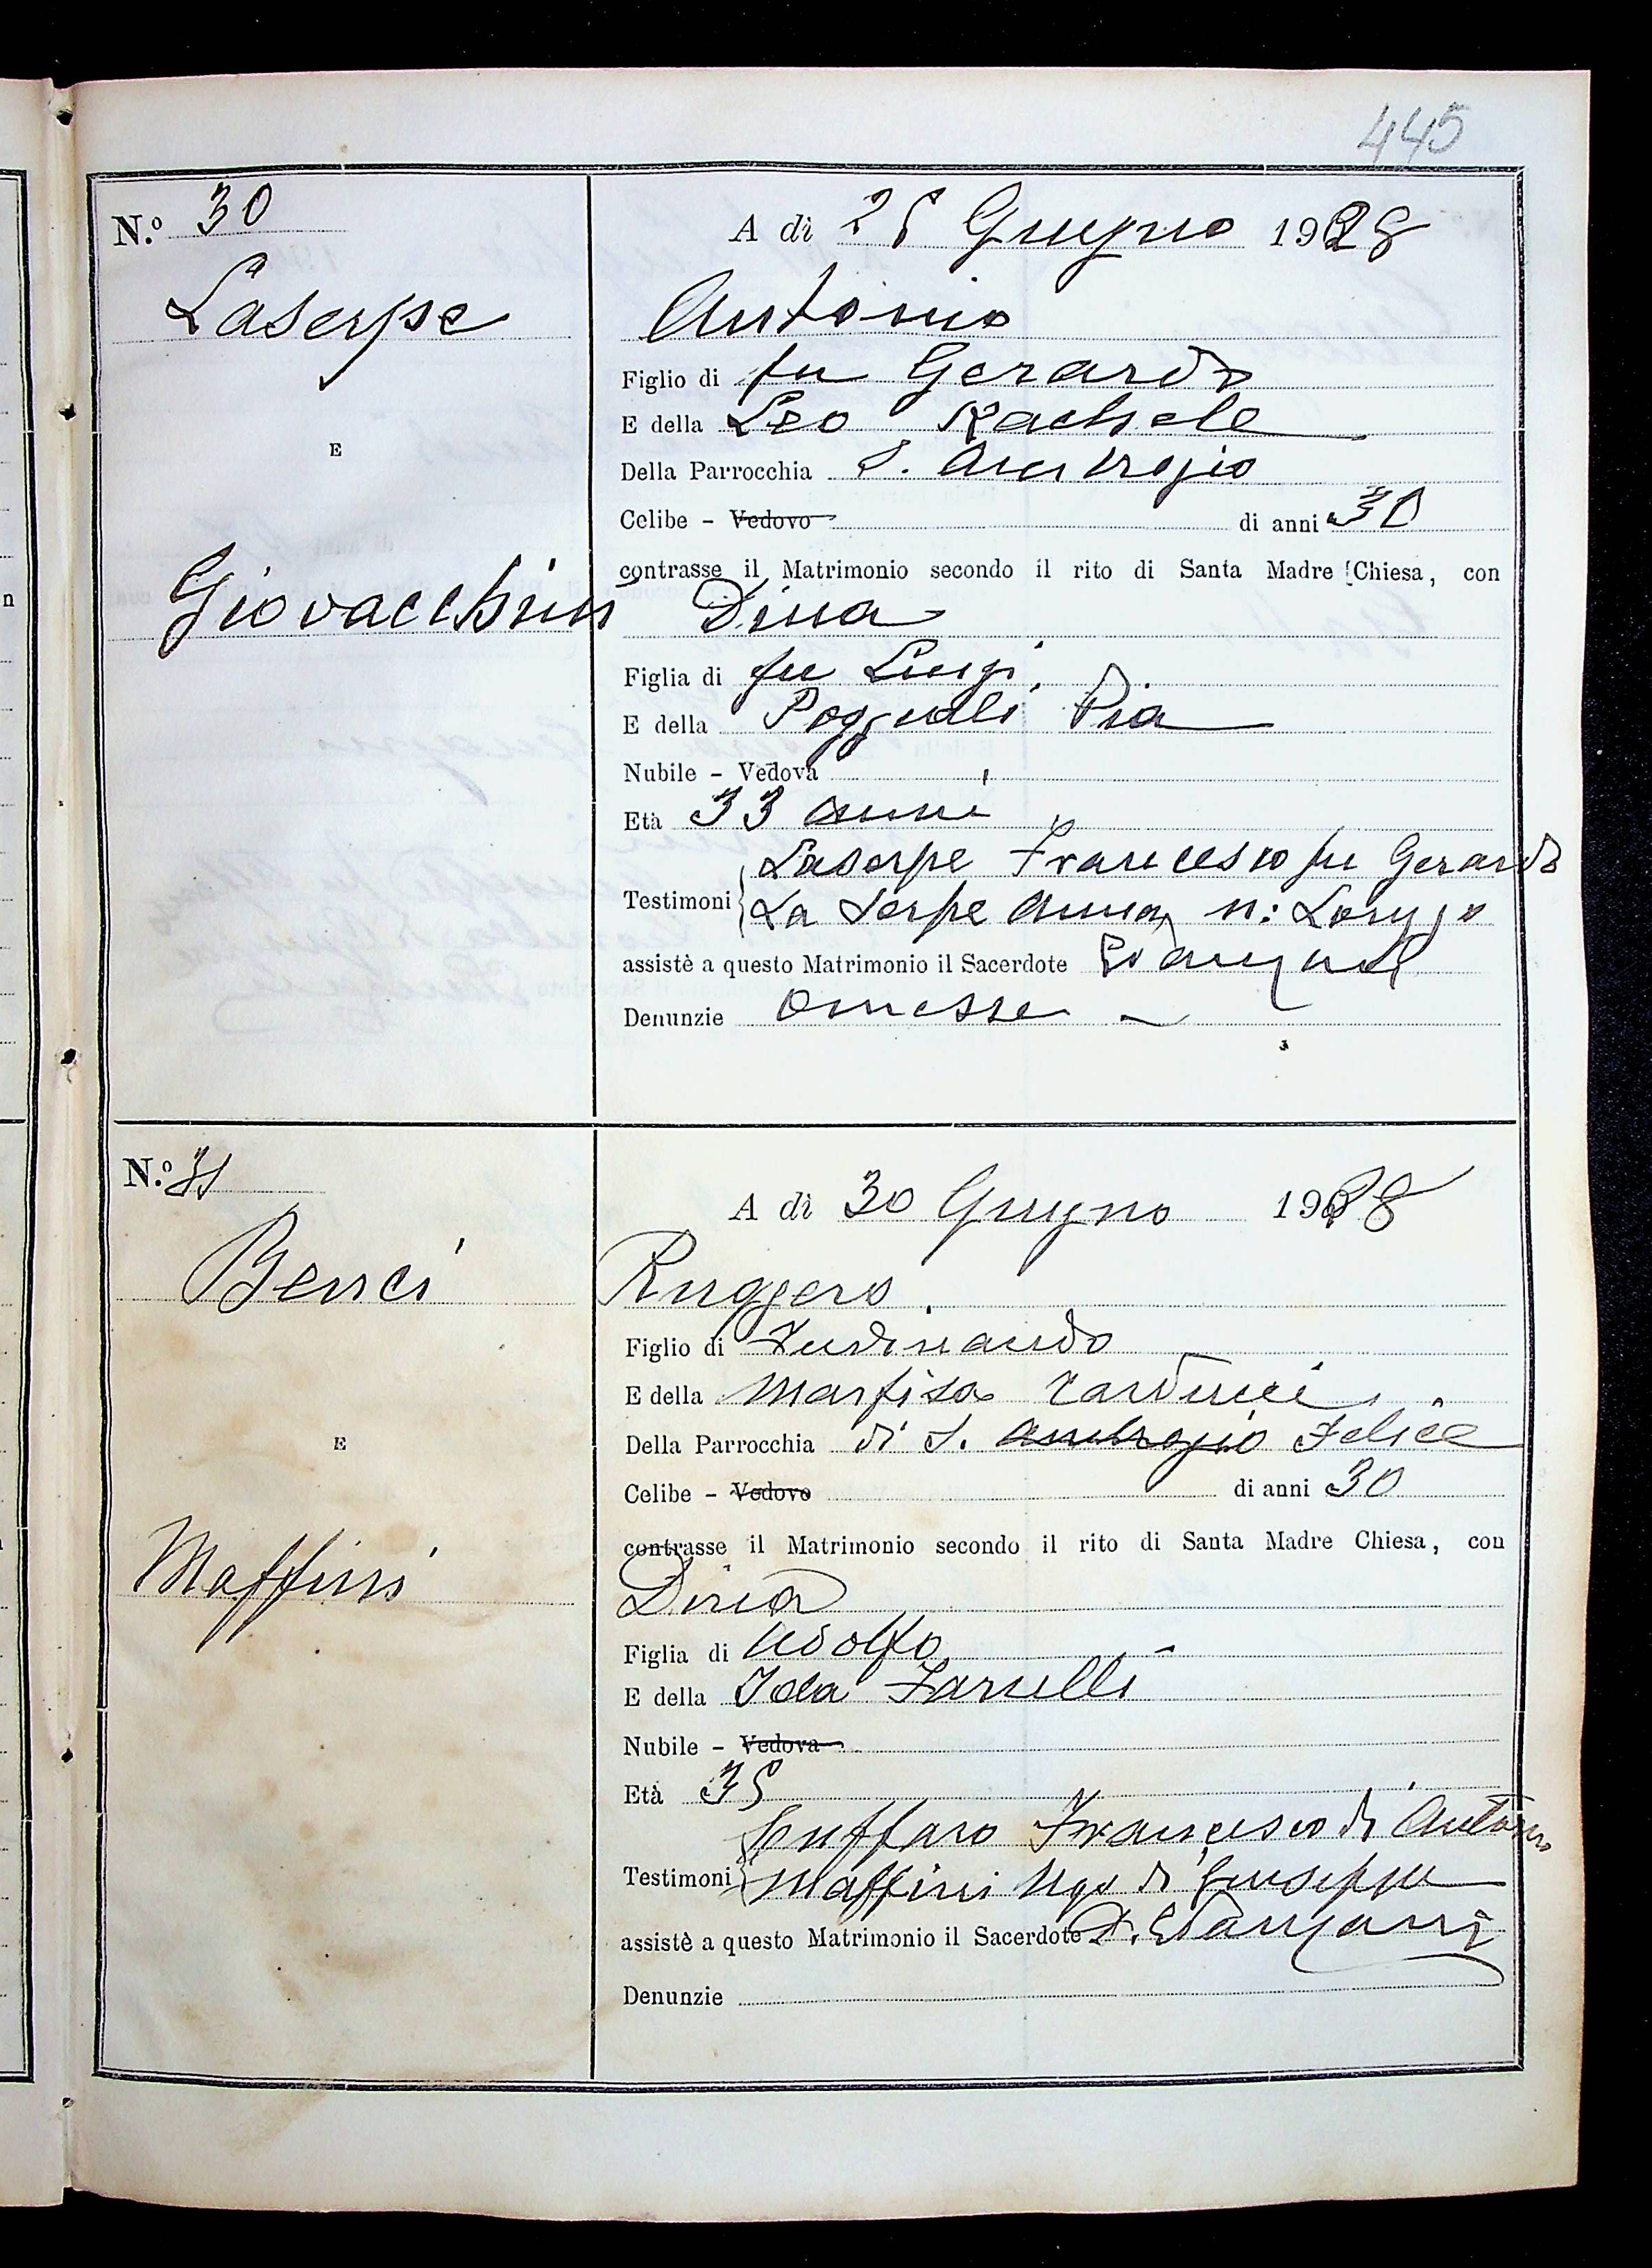 445
N.º 30
A dì 25 Giugno 1928
Laserpe
Antonio
Figlio di fu Gerardo
E della Leo Rachele
E
Della Parrocchia S. Ambrogio
Celibe - Vedovo di anni 30
contrasse il Matrimonio secondo il rito di Santa Madre Chiesa, con
Giovacchini Dina
Figlia di fu Luigi
E della Poggiali Pia
Nubile - Vedova
Età 33 anni
Laserpe Francesco fu Gerardo
Testimoni La Serpe Anna n:
assistè a questo Matrimonio il Sacerdote
Denunzie Omesse
N.º 31
A dì 30 Giugno 1928
Benci
Ruggero
Figlio di Ferdinando
E della Marfisa Carducci
E
Della Parrocchia di S. Ambrogio Felice
Celibe - Vedovo di anni 30
contrasse il Matrimonio secondo il rito di Santa Madre Chiesa, con
Maffini
Dina
Figlia di Adolfo
E della Ida
Nubile - Vedova
Età 35
Francesco di Antonio
Testimoni Maffini Ugo di Giuseppe
assistè a questo Matrimonio il Sacerdote
Denunzie